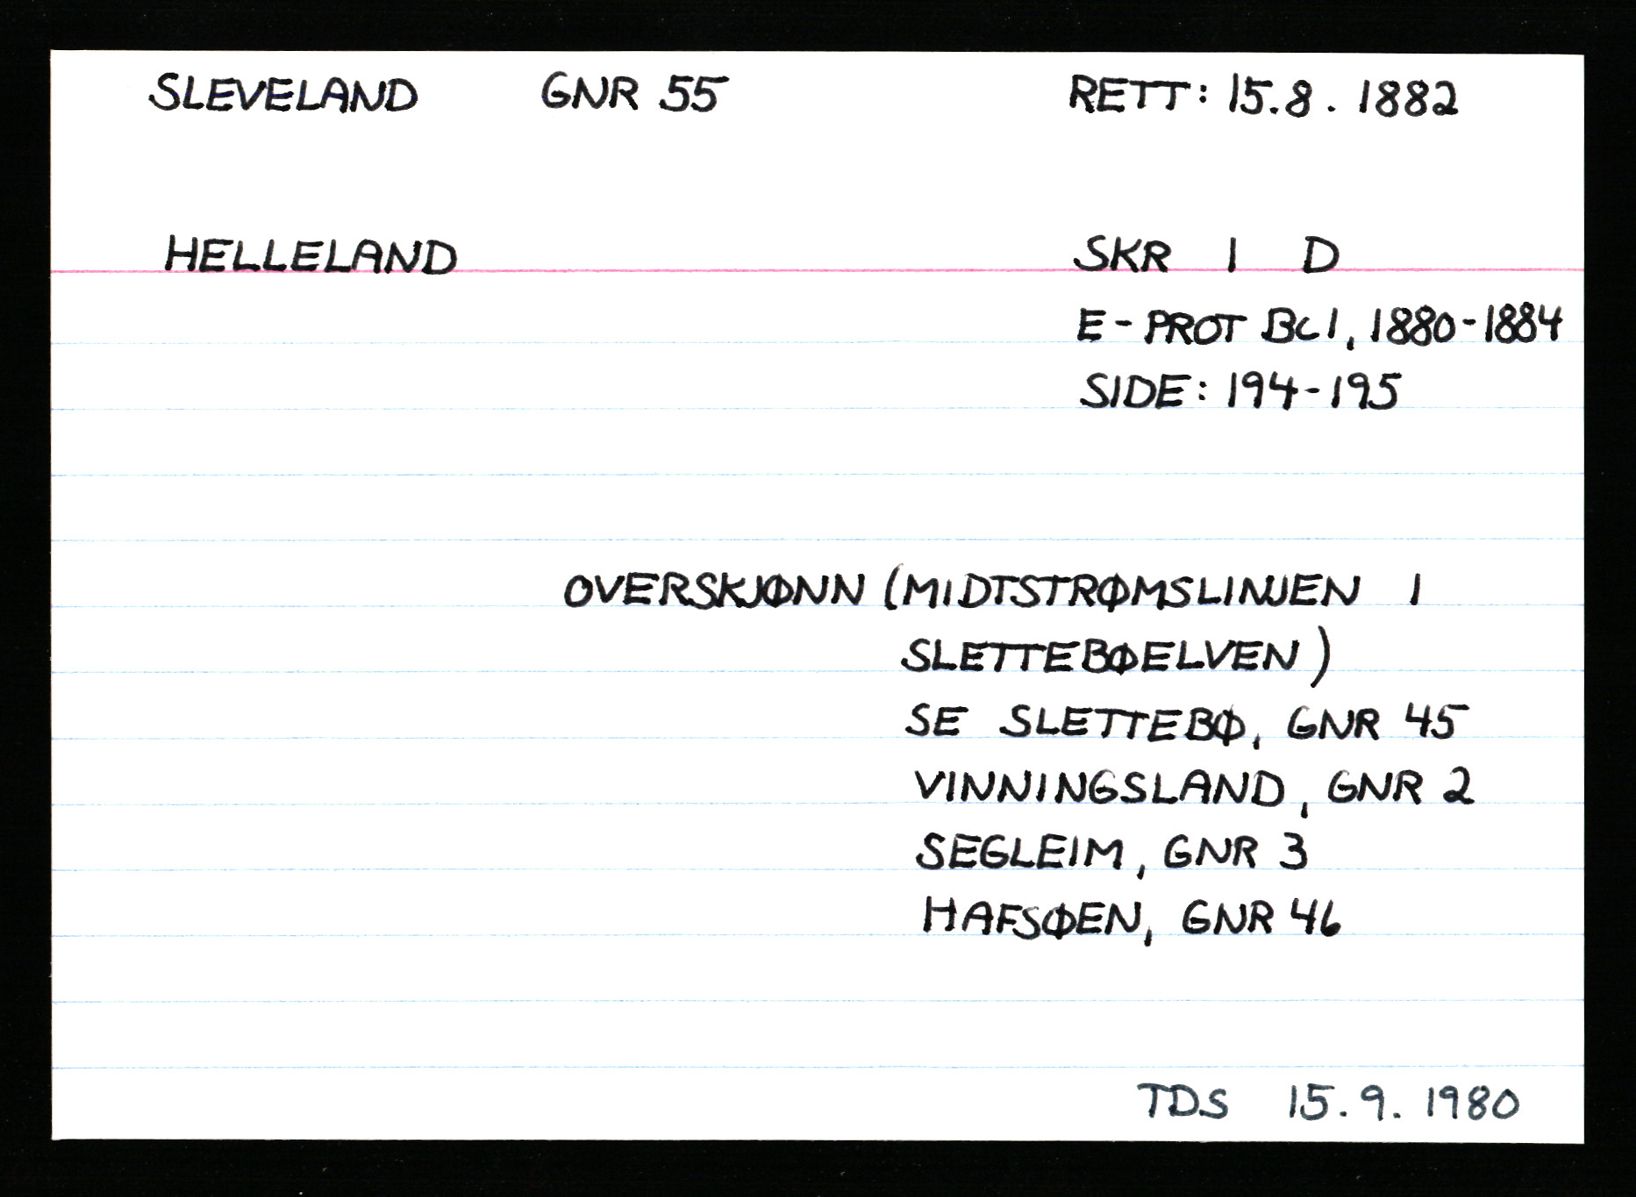 SLEVELAND GNR 55 RETT: 15.8. 1882
HELLELAND SKR I D
E-PROT BC1, 1880-1884
SIDE: 194-195
OVERSKJØNN (MIDTSTRØMSLINJEN I
SLETTEBØELVEN)
SE SLETTEBØ, GNR 45
VINNINGSLAND, GNR 2
SEGLEIM, GNR 3
HAFSØEN, GNR 46
TDS 15.9. 1980